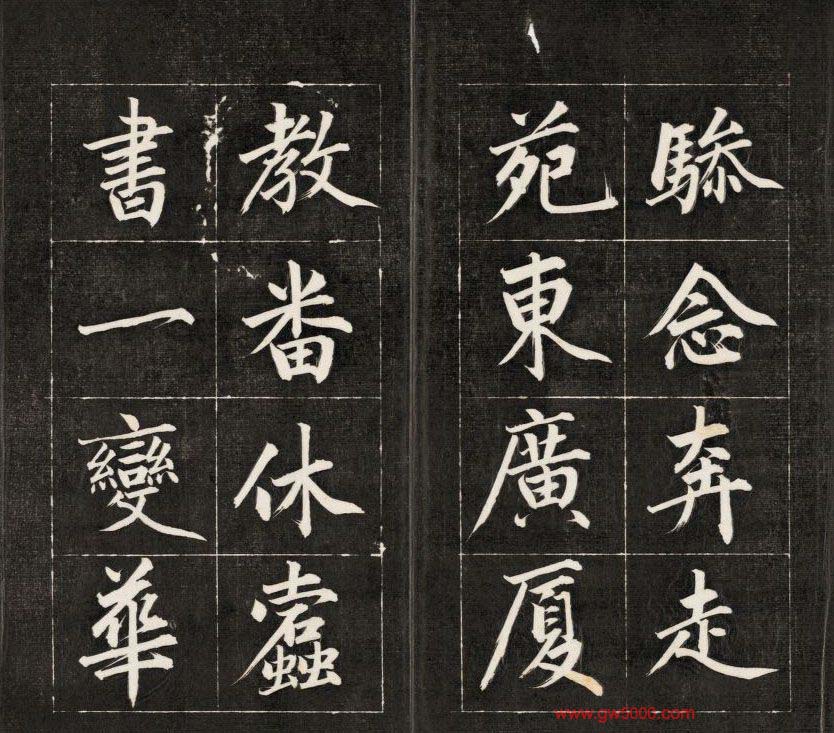 驂念奔走
苑東廣厦
教番休蠹
書一變華
www.gw5000.com